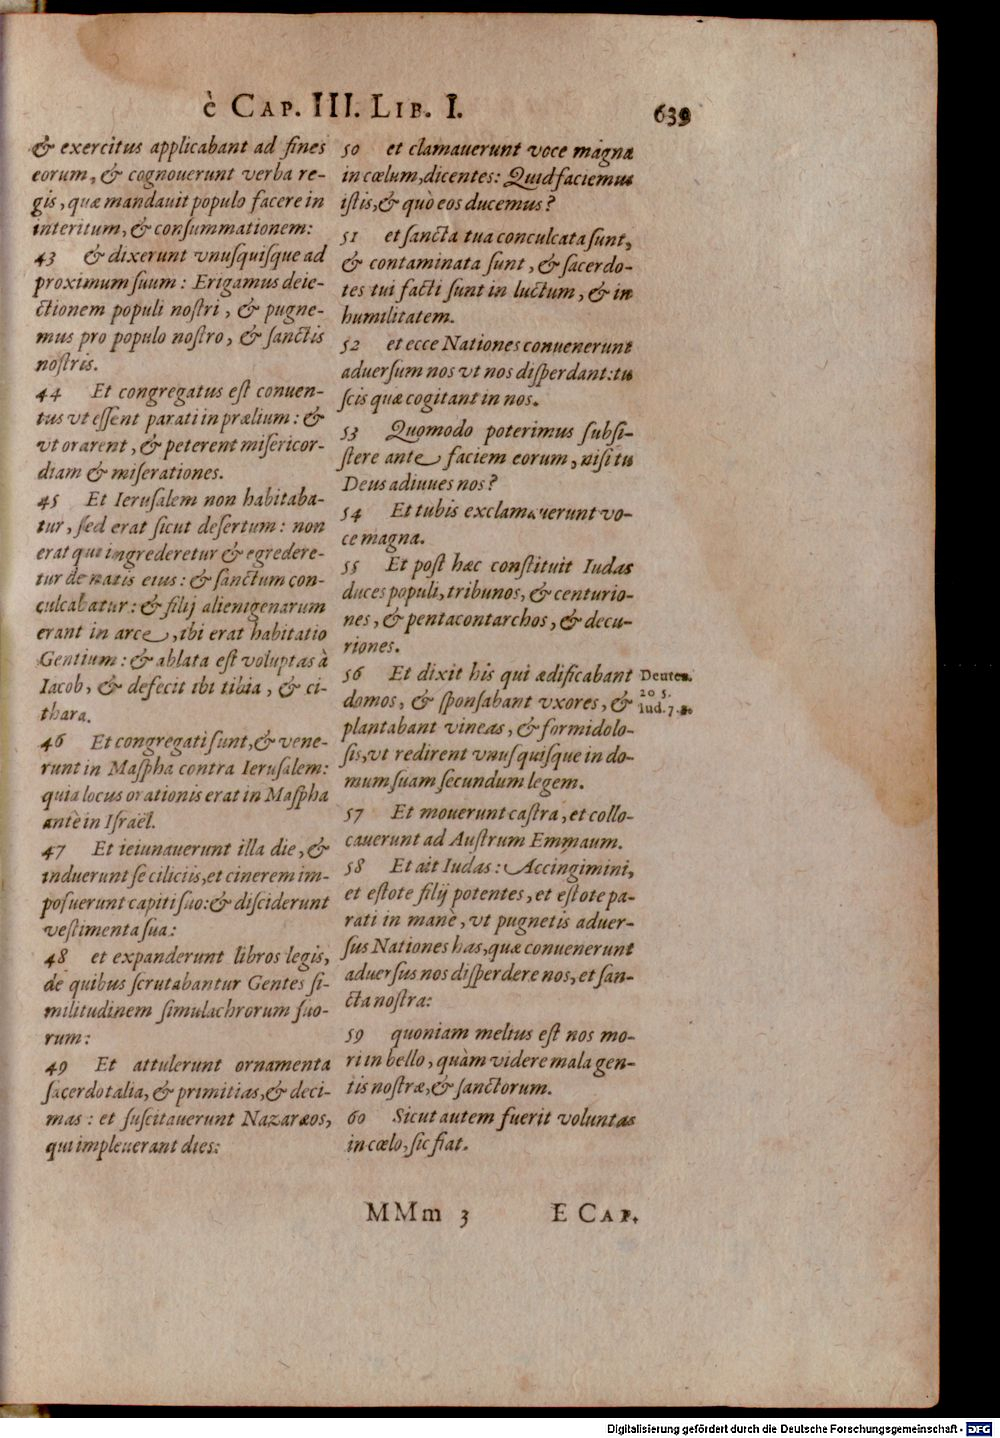 è CAP. III. LIB. I. 639
& exercitus applicabant ad fines
eorum, & cognouerunt verba re-
gis, quæ mandauit populo facere in
interitum, & consummationem:
43 & dixerunt vnusquisque ad
proximum suum: Erigamus deie-
ctionem populi nostri, & pugne-
mus pro populo nostro, & sanctis
nostris.
44 Et congregatus est conuen-
tus vt essent parati in prælium: &
vt orarent, & peterent misericor-
diam & miserationes.
45 Et Ierusalem non habitaba-
tur, sed erat sicut desertum: non
erat qui ingrederetur & egredere-
tur de natis eius: & sanctum con-
culcabatur: & filij alienigenarum
erant in arce, ibi erat habitatio
Gentium: & ablata est voluptas à
Iacob, & defecit ibi tibia, & ci-
thara.
46 Et congregati sunt, & vene-
runt in Maspha contra Ierusalem:
quia locus orationis erat in Maspha
antè in Israël.
47 Et ieiunauerunt illa die, &
induerunt se ciliciis, et cinerem im-
posuerunt capiti suo: & disciderunt
vestimenta sua:
48 et expanderunt libros legis,
de quibus scrutabantur Gentes si-
militudinem simulachrorum suo-
rum:
49 Et attulerunt ornamenta
sacerdotalia, & primitias, & deci-
mas: et suscitauerunt Nazaræos,
qui impleuerant dies:
50 et clamauerunt voce magna
in cœlum, dicentes: Quid faciemus
istis, & quò eos ducemus?
51 et sancta tua conculcata sunt,
& contaminata sunt, & sacerdo-
tes tui facti sunt in luctum, & in
humilitatem.
52 et ecce Nationes conuenerunt
aduersum nos vt nos disperdant: tu
scis quæ cogitant in nos.
53 Quomodo poterimus subsi-
stere ante faciem eorum, nisi tu
Deus adiuues nos?
54 Et tubis exclamauerunt vo-
ce magna.
55 Et post hæc constituit Iudas
duces populi, tribunos, & centurio-
nes, & pentacontarchos, & decu-
riones.
56 Et dixit his qui ædificabant
domos, & sponsabant vxores, &
plantabant vineas, & formidolo-
sis, vt redirent vnusquisque in do-
mum suam secundum legem.
Deuter.
20 5.
Iud. 7.
57 Et mouerunt castra, et collo-
cauerunt ad Austrum Emmaum.
58 Et ait Iudas: Accingimini,
et estote filij potentes, et estote pa-
rati in manè, vt pugnetis aduer-
sus Nationes has, quæ conuenerunt
aduersus nos disperdere nos, et san-
cta nostra:
59 quoniam melius est nos mo-
ri in bello, quàm videre mala gen-
tis nostræ, & sanctorum.
60 Sicut autem fuerit voluntas
in cœlo, sic fiat.
MMm 3 E CAP.
Digitalisierung gefördert durch die Deutsche Forschungsgemeinschaft - DFG